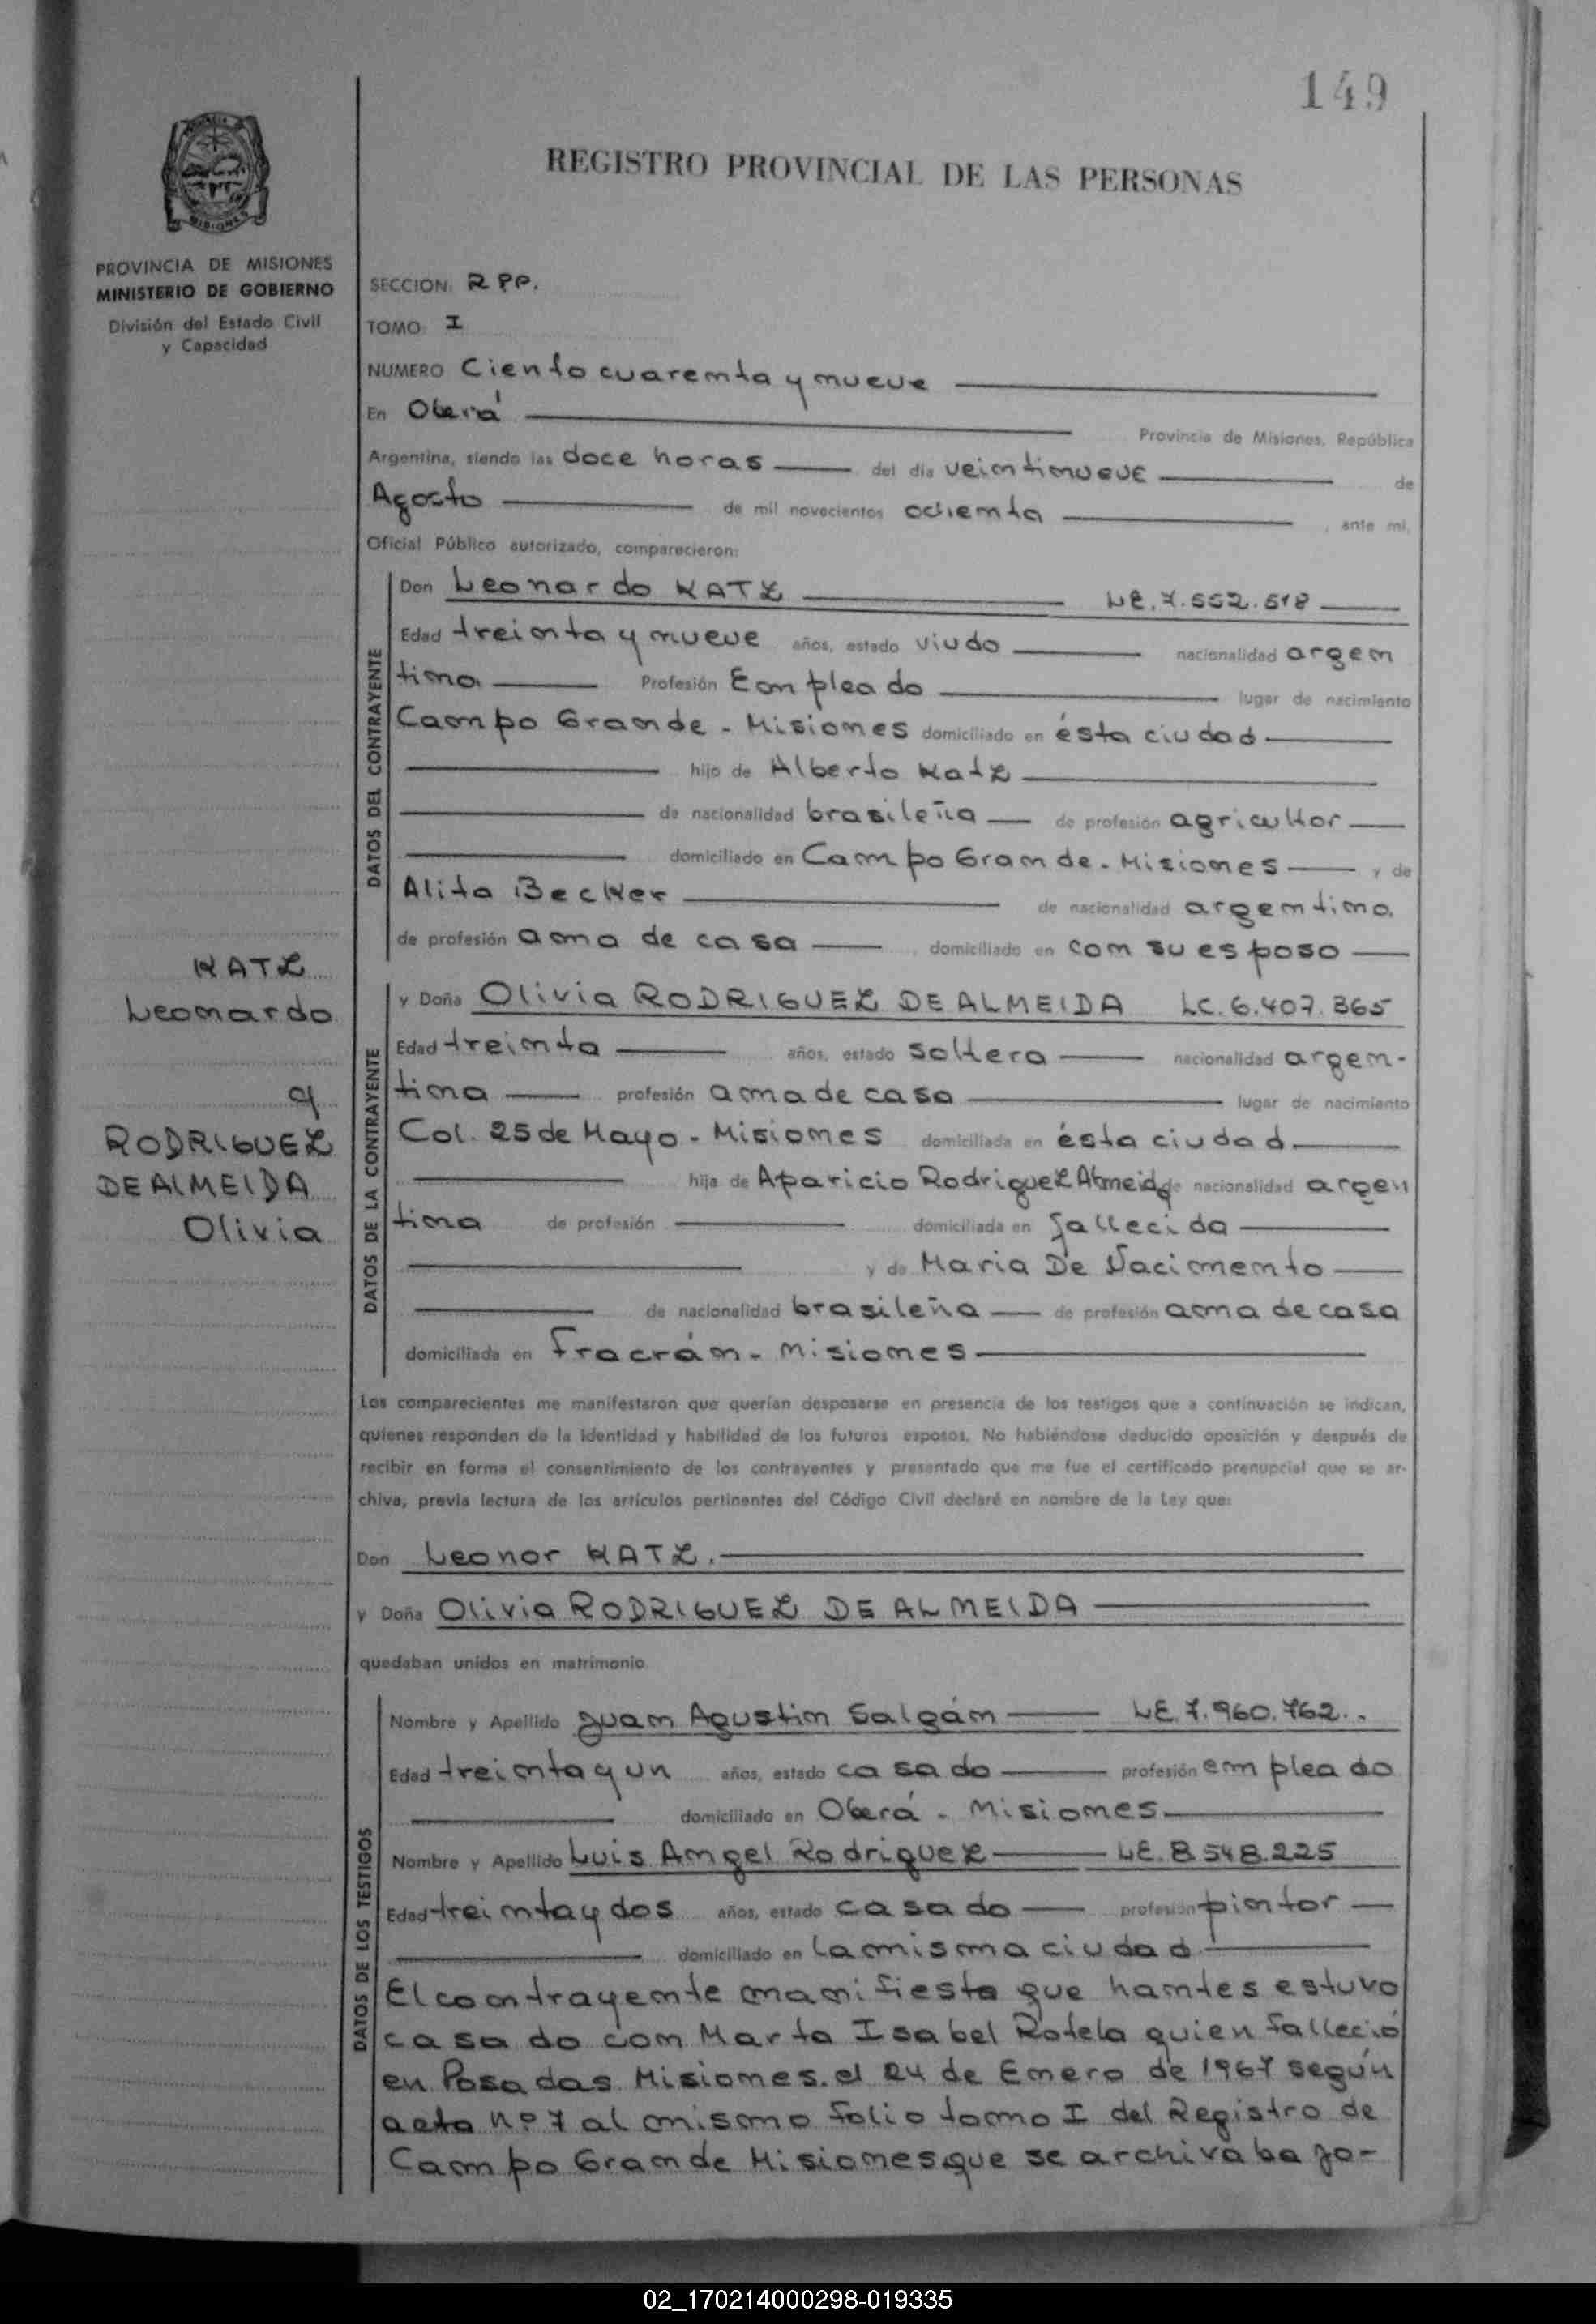 149
REGISTRO PROVINCIAL DE LAS PERSONAS
PROVINCIA DE MISIONES
MINISTERIO DE GOBIERNO
División del Estado Civil
y Capacidad
SECCION: R PP.
TOMO: I
NUMERO Ciento cuarenta y nueve
En Oberá Provincia de Misiones, República
Argentina, siendo las doce horas del día veintinueve de
Agosto de mil novecientos ochenta , ante mí,
Oficial Público autorizado, comparecieron:
DATOS DEL CONTRAYENTE
Don Leonardo KATZ LE. 7.552.518
Edad treinta y nueve años, estado viudo nacionalidad argen
tina Profesión Empleado lugar de nacimiento
Campo Grande - Misiones domiciliado en ésta ciudad
hijo de Alberto Katz
de nacionalidad brasileña de profesión agricultor
domiciliado en Campo Grande - Misiones y de
Alita Becker de nacionalidad argentina.
de profesión ama de casa , domiciliado en con su esposo
KATZ
Leonardo
y
RODRIGUEZ
DE ALMEIDA
Olivia
DATOS DE LA CONTRAYENTE
y Doña Olivia RODRIGUEZ DE ALMEIDA LC. 6.407.365
Edad treinta años, estado soltera nacionalidad argen-
tina profesión ama de casa lugar de nacimiento
Col. 25 de Mayo - Misiones domiciliada en ésta ciudad
hija de Aparicio Rodriguez Almeida de nacionalidad argen
tina de profesión domiciliada en fallecida
y de Maria De Nacimento
de nacionalidad brasileña de profesión ama de casa
domiciliada en Fracrán - Misiones
Los comparecientes me manifestaron que querían desposarse en presencia de los testigos que a continuación se indican,
quienes responden de la identidad y habilidad de los futuros esposos. No habiéndose deducido oposición y después de
recibir en forma el consentimiento de los contrayentes y presentado que me fue el certificado prenupcial que se ar-
chiva, previa lectura de los artículos pertinentes del Código Civil declaré en nombre de la Ley que:
Don Leonor KATZ.
y Doña Olivia RODRIGUEZ DE ALMEIDA
quedaban unidos en matrimonio.
DATOS DE LOS TESTIGOS
Nombre y Apellido Juan Agustin Salgán LE. 7.960.762..
Edad treinta y un años, estado casado profesión empleado
domiciliado en Oberá - Misiones
Nombre y Apellido Luis Angel Rodriguez LE. 8.548.225
Edad treinta y dos años, estado casado profesión pintor
domiciliado en la misma ciudad
El contrayente manifiesta que hantes estuvo
casado con Marta Isabel Rotela quien falleció
en Posadas Misiones. el 24 de Enero de 1967 según
acta nº 7 al mismo folio tomo I del Registro de
Campo Grande Misiones que se archiva bajo-
02_170214000298-019335